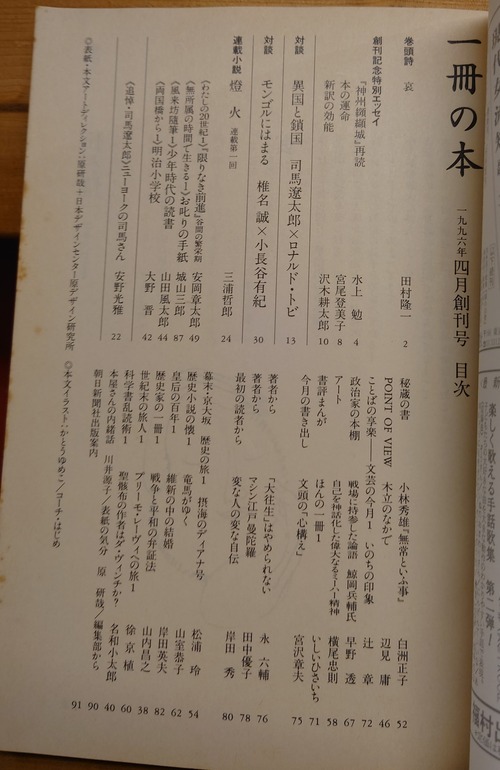 一冊の本
一九九六年四月創刊号 目次
巻頭詩 哀 田村隆一 2
創刊記念特別エッセイ
『神州纐纈城』再読 水上 勉 4
本の運命 宮尾登美子 8
新訳の効能 沢木耕太郎 10
対談 異国と鎖国 司馬遼太郎×ロナルド・トビ 13
対談 モンゴルにはまる 椎名 誠×小長谷有紀 30
連載小説 燈 火 連載第一回 三浦哲郎 24
《わたしの20世紀1》『限りなき前進』谷間の繁栄期 安岡章太郎 49
《無所属の時間で生きる1》お叱りの手紙 城山三郎 87
《風来坊随筆1》少年時代の読書 山田風太郎 44
《両国橋から1》明治小学校 大野 晋 42
《追悼・司馬遼太郎》ニューヨークの司馬さん 安野光雅 22
◎表紙・本文アートディレクション:原研哉+日本デザインセンター原デザイン研究所
秘蔵の書 小林秀雄『無常といふ事』 白洲正子 52
POINT OF VIEW 木立のなかで 辺見 庸 46
ことばの享楽——文芸の今月1 いのちの印象 辻 章 72
政治家の本棚 戦場に持参した論語 鯨岡兵輔氏 早野 透 67
アート 自己を神話化した偉大なるミーハー精神 横尾忠則 58
書評まんが ほんの一冊1 いしいひさいち 71
今月の書き出し 文頭の「心構え」 宮沢章夫 75
著者から 『大往生』はやめられない 永 六輔 76
著者から マシン江戸曼陀羅 田中優子 78
最初の読者から 変な人の変な自伝 岸田 秀 80
幕末・京大坂 歴史の旅1 摂海のディアナ号 松浦 玲 54
歴史小説の懐1 竜馬がゆく 山室恭子 62
皇后の百年1 維新の中の結婚 岸田英夫 82
歴史家の一冊1 戦争と平和の弁証法 山内昌之 38
世紀末の旅人1 プリーモ・レーヴィへの旅1 徐 京植 60
科学書乱読術1 聖骸布の作者はダ・ヴィンチか? 名和小太郎 40
本屋さんの内緒話 川井源子/表紙の気分 原 研哉/編集部から 90
朝日新聞社出版案内 91
◎本文イラスト:かとうゆめこ/コーチ・はじめ